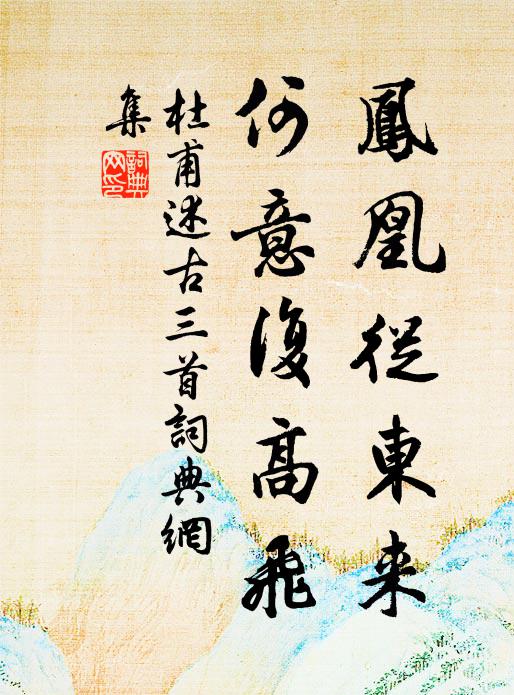 鳳凰從東来
何意復高飛
杜甫述古三首詞典網
集
詞典
网印